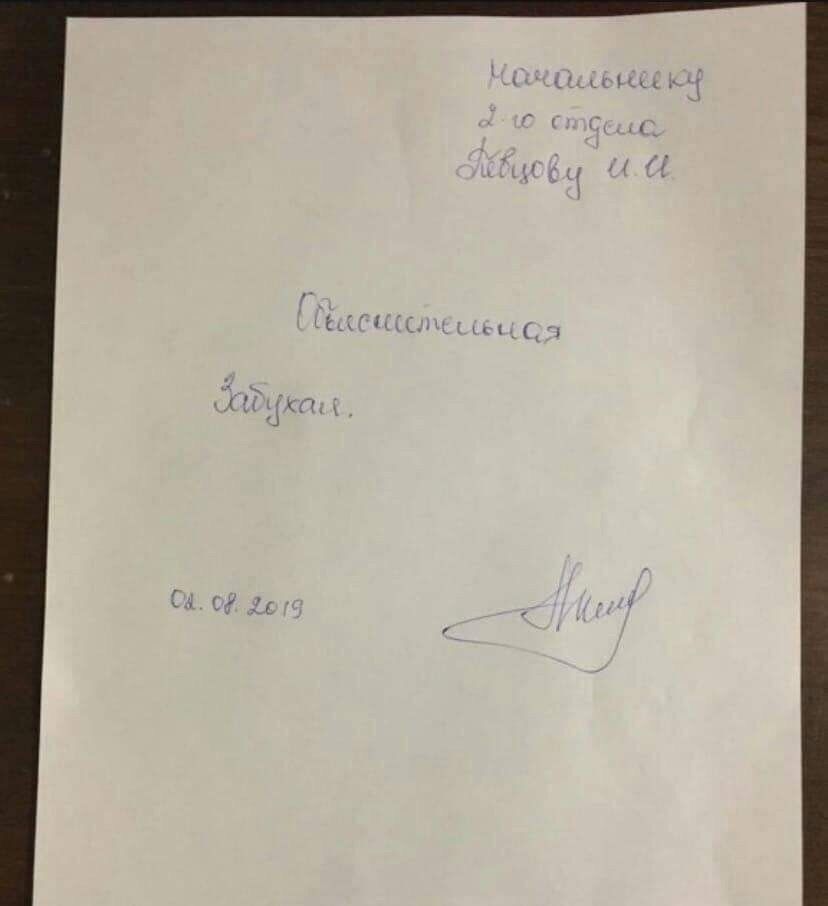 Начальнику
2-го отдела
Певцову И.И.
Объяснительная
Забухал.
02.08.2019